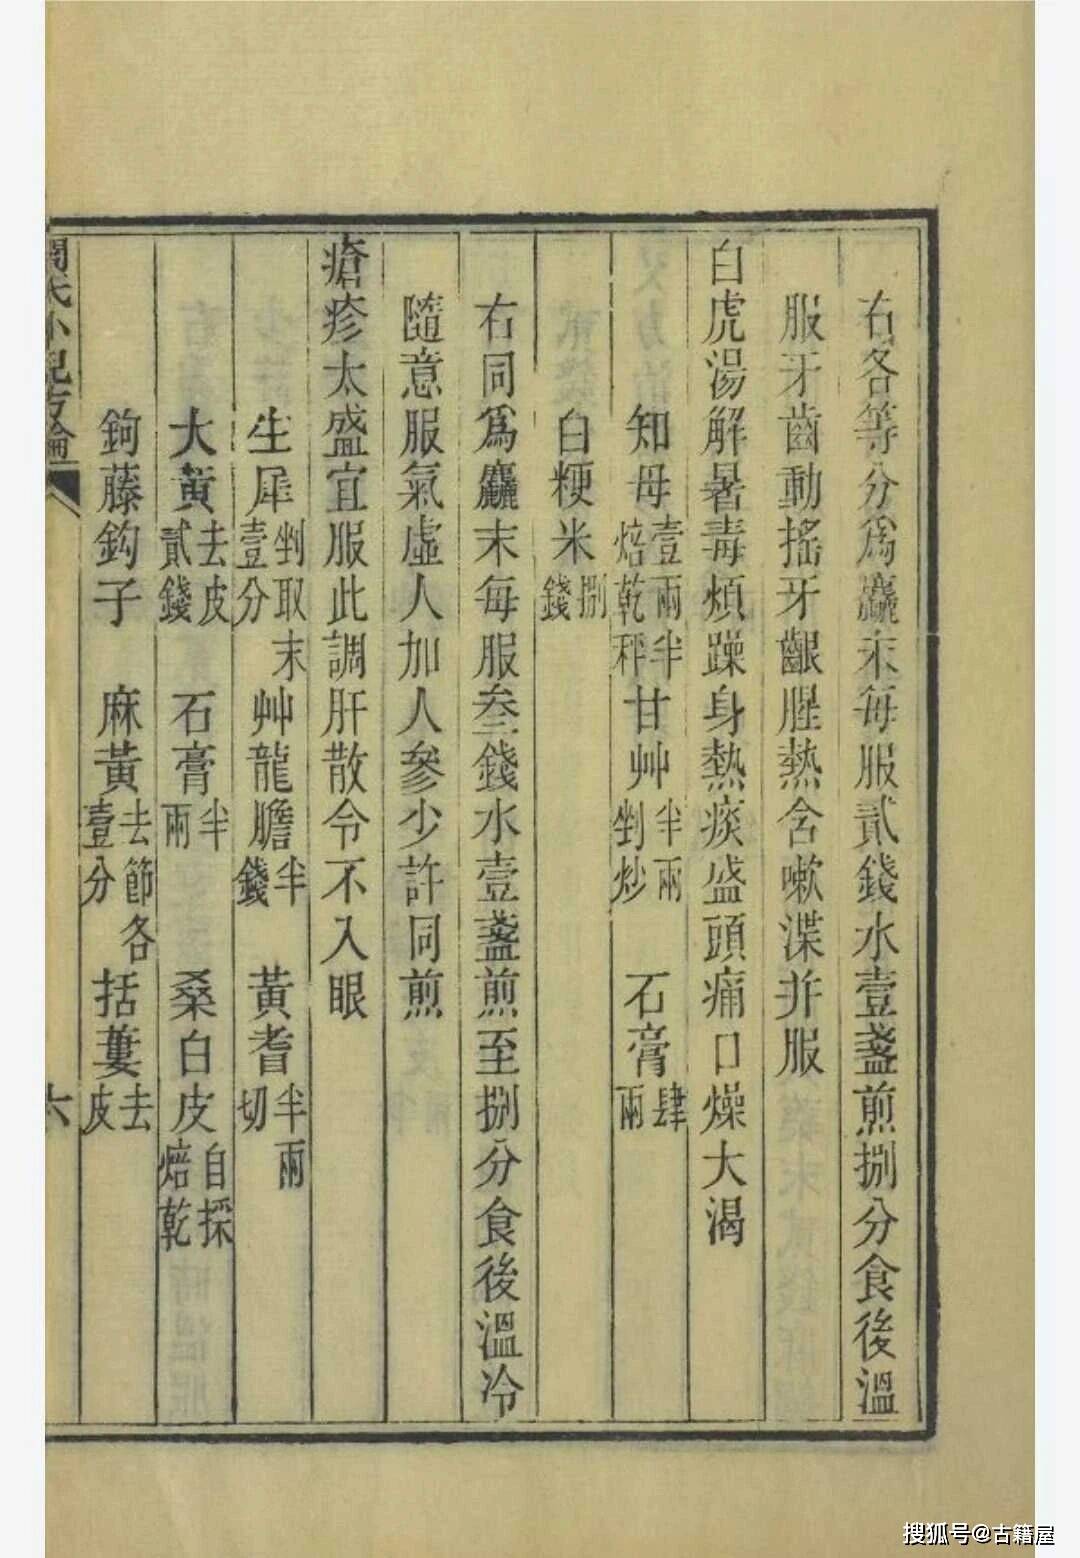 右各等分爲麤末每服貳錢水壹盞煎捌分食後溫
服牙齒動搖牙齦腥熱含嗽渫并服
白虎湯解暑毒煩躁身熱痰盛頭痛口燥大渴
知母壹兩半焙乾秤 甘艸半兩剉炒 石膏肆兩
白粳米捌錢
右同爲麤末每服叁錢水壹盞煎至捌分食後溫冷
隨意服氣虛人加人參少許同煎
瘡疹太盛宜服此調肝散令不入眼
生犀剉取末壹分 艸龍膽半錢 黃耆半兩切
大黃去皮貳錢 石膏半兩 桑白皮自採焙乾
鉤藤鈎子 麻黃去節各壹分 括蔞去皮
閻氏小兒方論
六
搜狐号@古籍屋